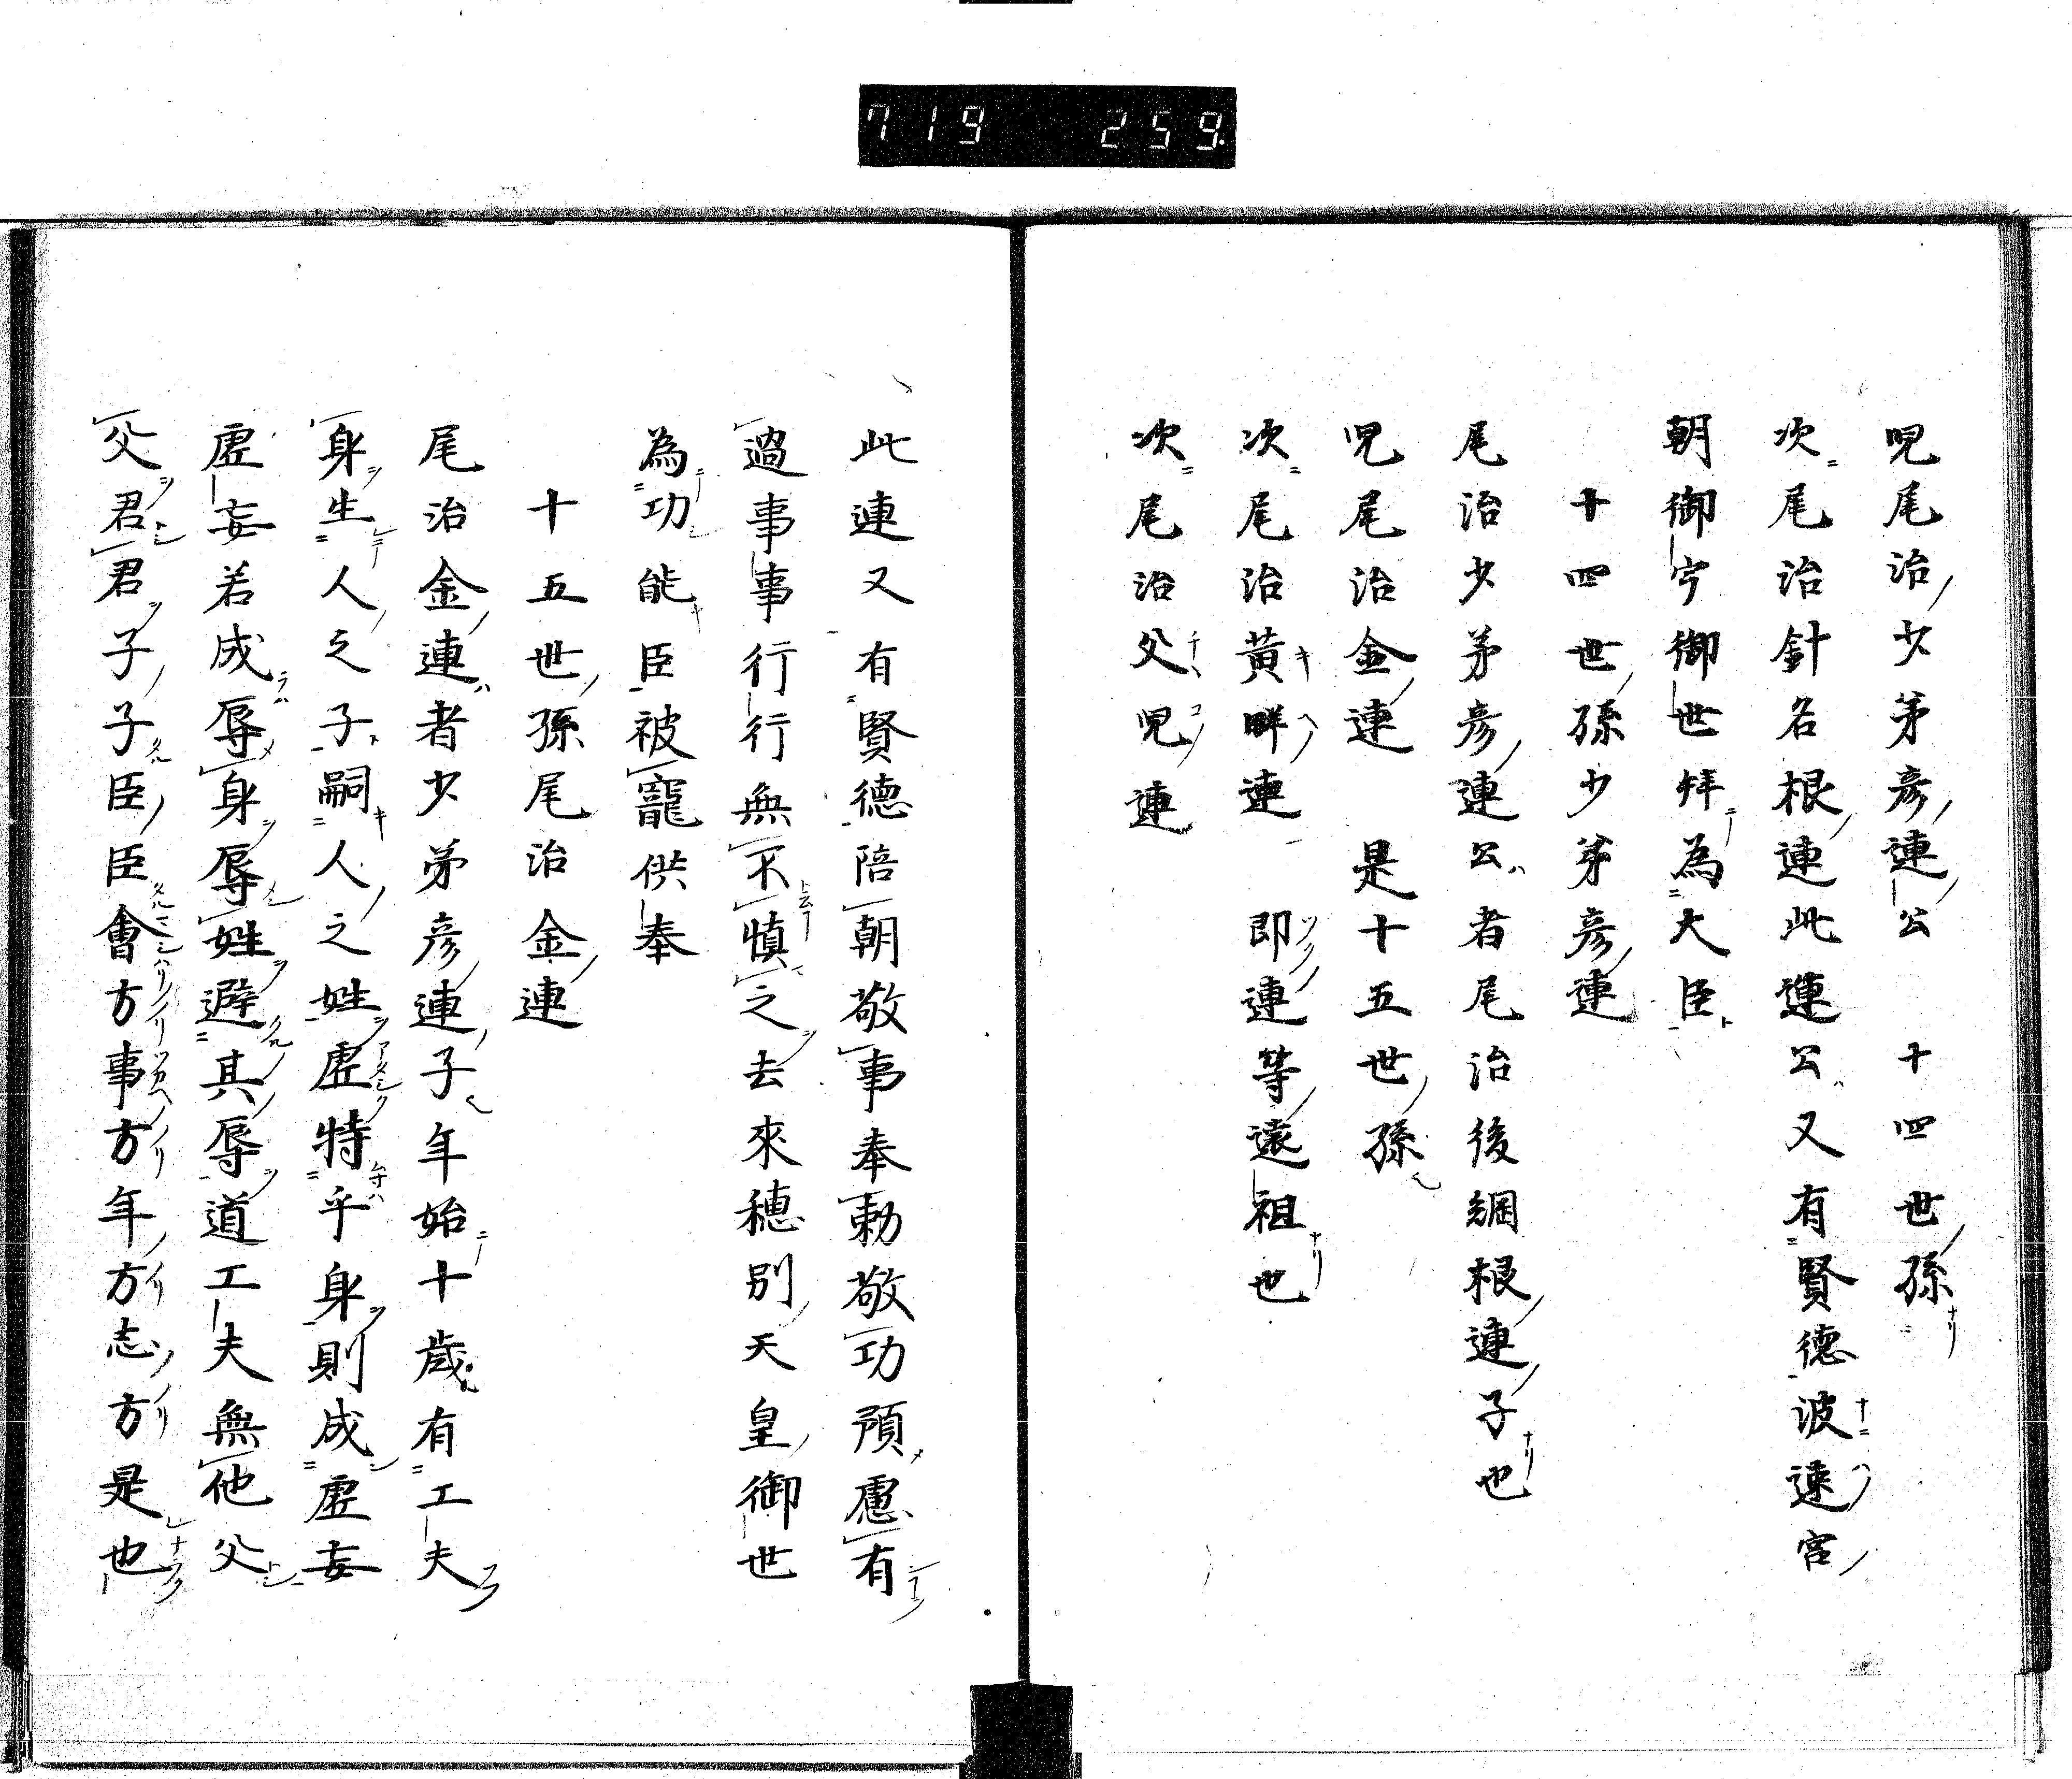 719 259
児尾治少弟彦連公 十四世孫
次尾治針名根連此連公又有賢德波速宮
朝御宇御世拜為大臣
十四世孫少弟彦連
尾治少弟彦連公者尾治後綱根連子也
児尾治金連 是十五世孫
次尾治黃畔連 即連等遠祖也
次尾治父児連
此連又有賢德陪朝敬事奉勅敬功預慮有
過事事行行無不慎之去來穗別天皇御世
為功能臣被寵供奉
十五世孫尾治金連
尾治金連者少弟彦連子年始十歲有工夫
身生人之子嗣人之姓虛特乎身則成虛妄
虛妄若成辱身辱姓避其辱道工夫無他父
父君君子子臣臣會方事方年方志方是也